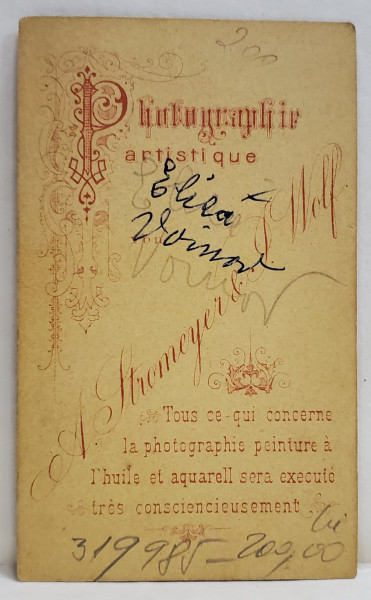 200
Photographie
artistique
Elisa
Voinov
A. Stromeyer & J. Wolf
Tous ce-qui concerne
la photographis peinture à
l'huile et aquarell sera executó
trés consciencieusement
319985-200,00 lei